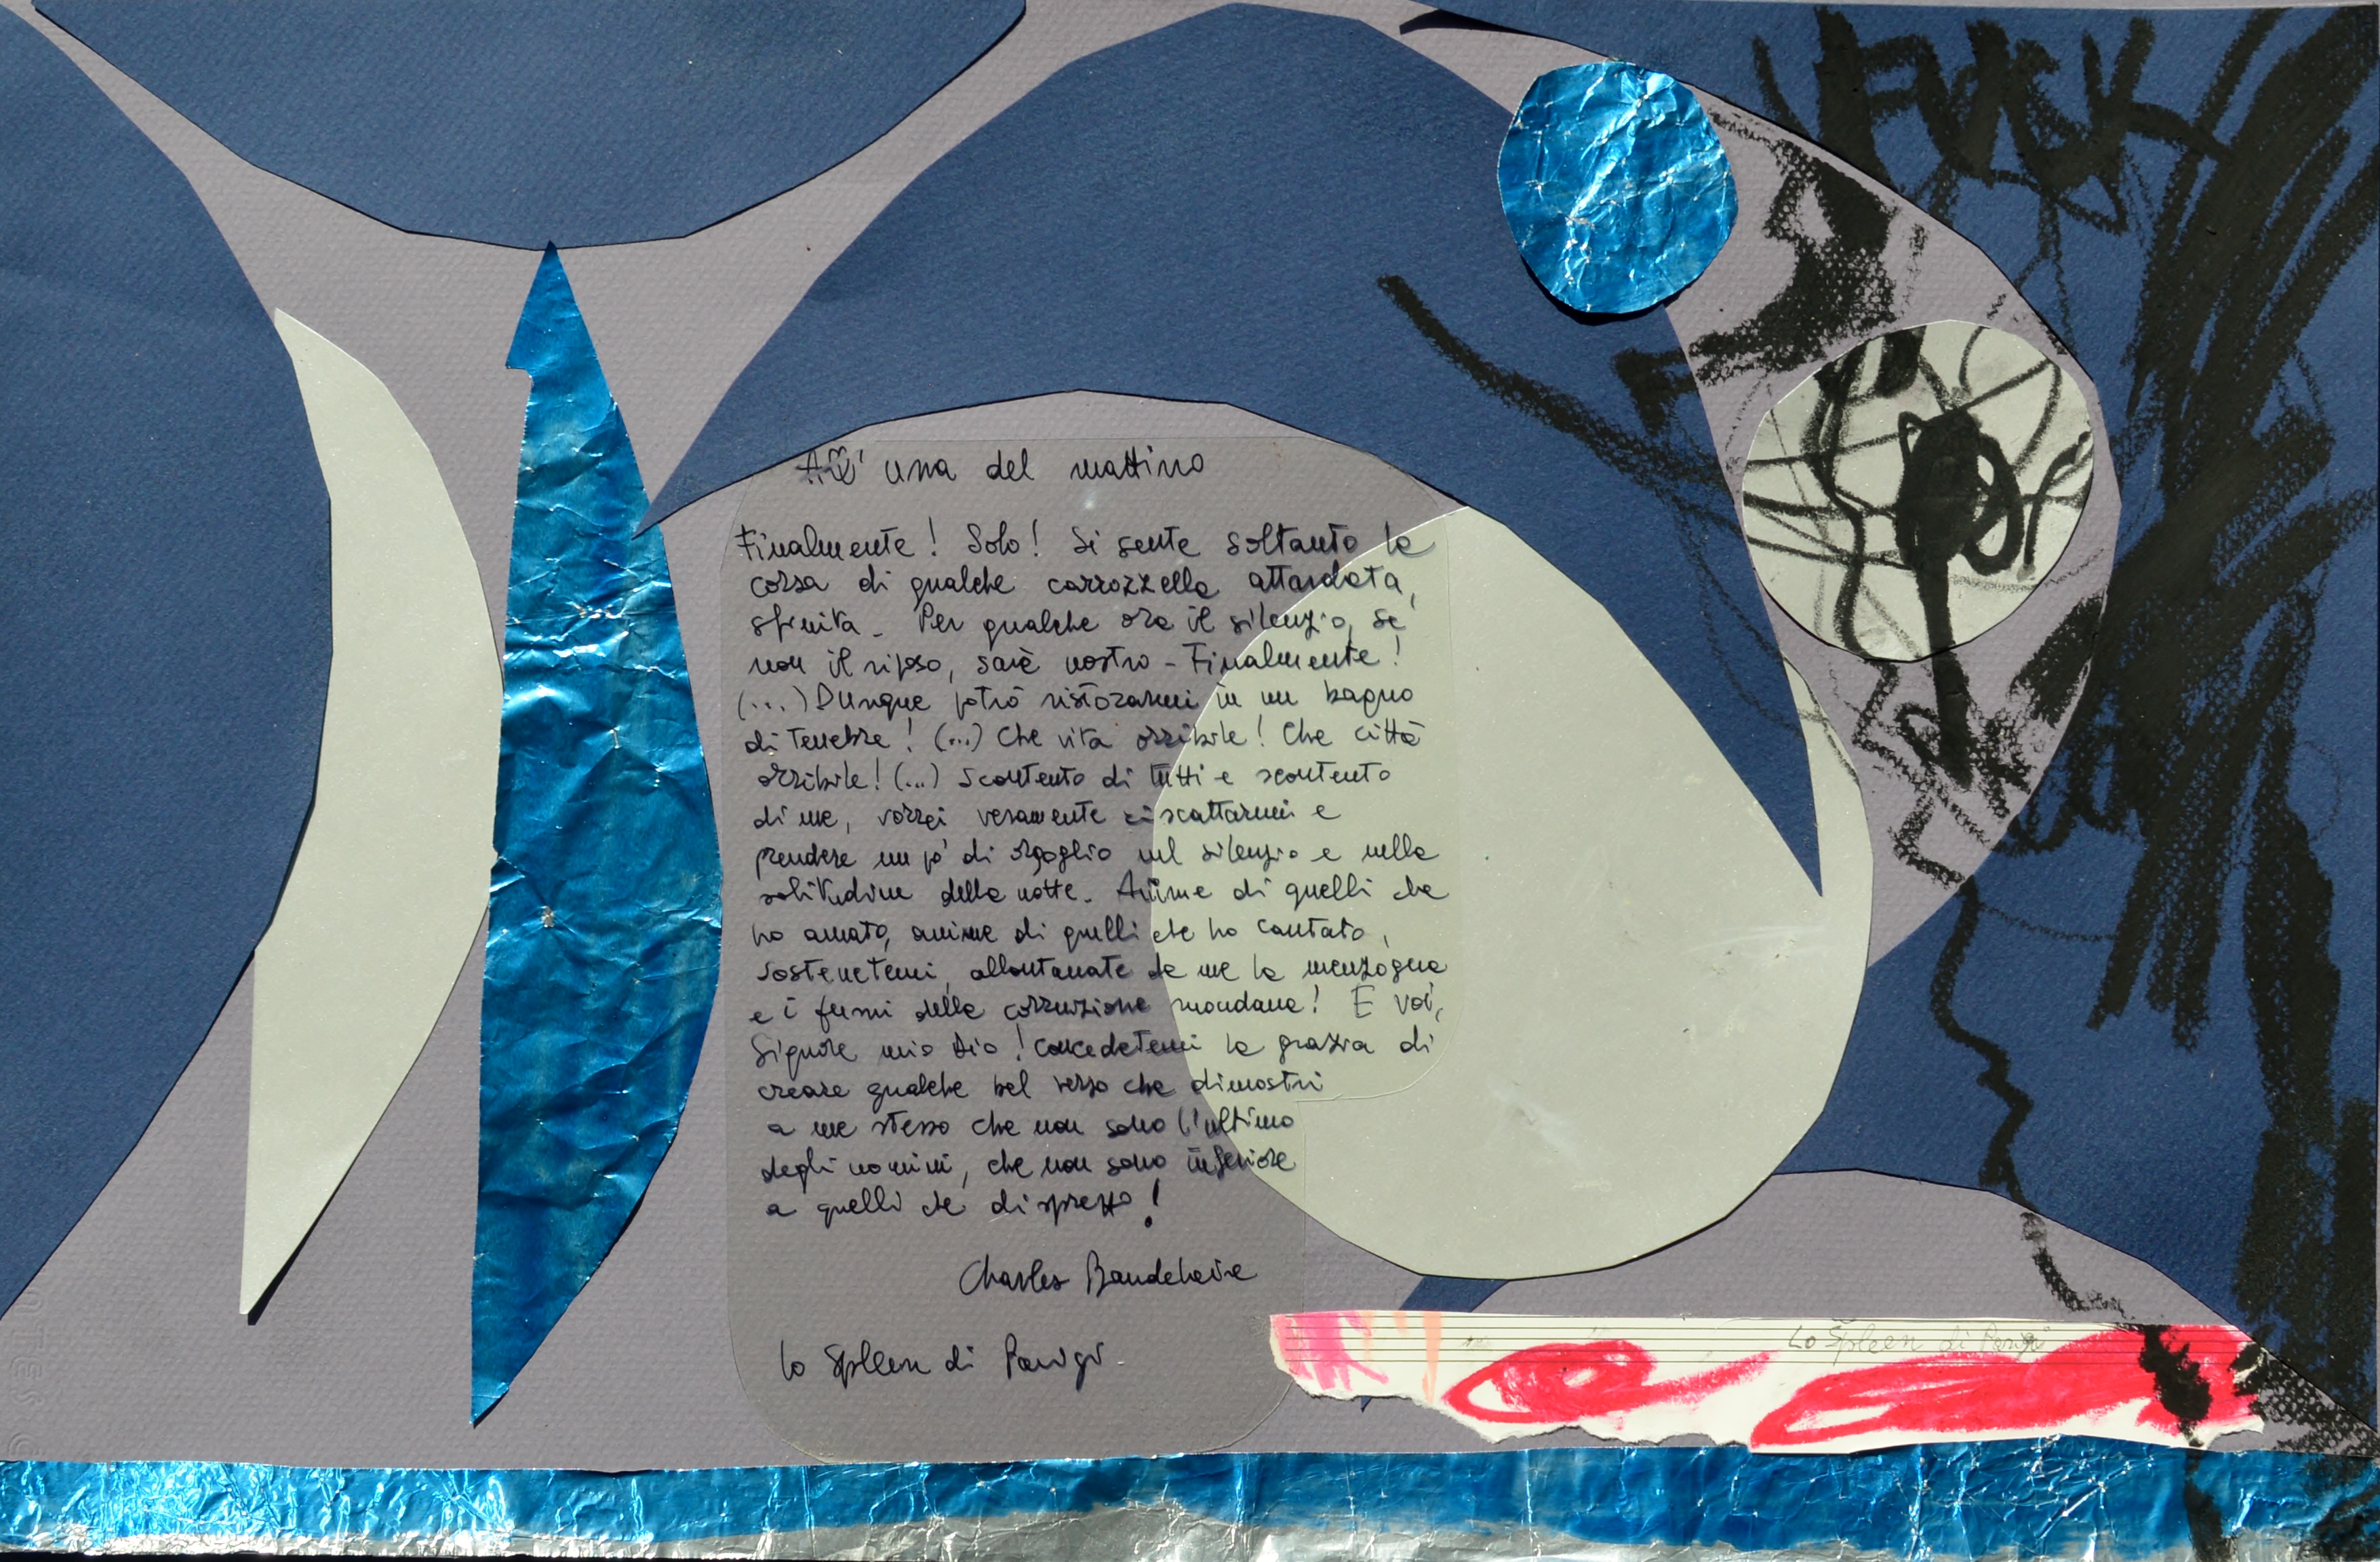 FUCK
All' una del mattino
Finalmente! Solo! Si sente soltanto la
corsa di qualche carrozzella attardata,
sfinita. Per qualche ora il silenzio, se
non il riposo, sarà nostro - Finalmente!
(...) Dunque potrò ristorarmi in un bagno
di tenebre! (...) Che vita orribile! Che città
orribile! (...) Scontento di tutti e scontento
di me, vorrei veramente riscattarmi e
prendere un po' di orgoglio nel silenzio e nella
solitudine della notte. Anime di quelli che
ho amato, anime di quelli che ho cantato,
sostenetemi, allontanate da me la menzogna
e i fumi della corruzione mondana! E voi,
Signore mio Dio! Concedetemi la grazia di
creare qualche bel verso che dimostri
a me stesso che non sono l'ultimo
degli uomini, che non sono inferiore
a quelli che disprezzo!
Charles Baudelaire
Lo Spleen di Parigi
Lo Spleen di Parigi